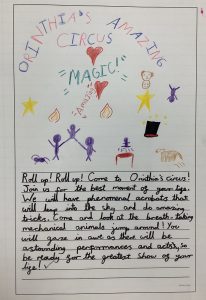 ORINTHIA'S AMAZING
CIRCUS
"MAGIC!"
Amazing
Roll up! Roll up! Come to Orinthia's circus!
Join us for the best moment of your life.
We will have phenomenal acrobats that
will leap into the sky and do amazing
tricks. Come and look at the breath-taking
mechanical animals jump around! You
will gaze in awe as there will be
astounding performances and acts, so
be ready for the greatest show of your
life!